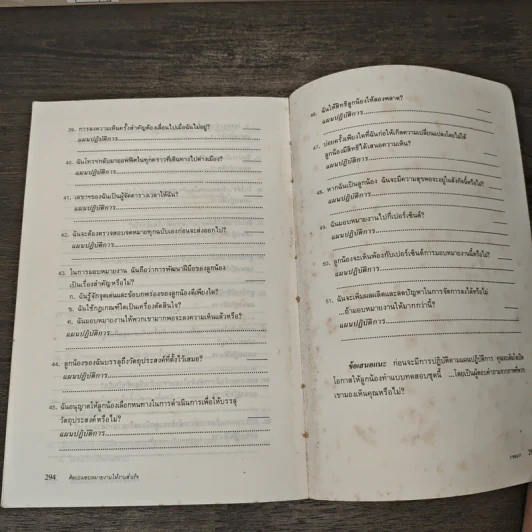 39. การลงความเห็นครั้งสำคัญต้องเลื่อนไปเมื่อฉันไม่อยู่?
แผนปฏิบัติการ
40. ฉันโทรฯกลับมาออฟฟิศในทุกคราวที่เดินทางไปต่างเมือง?
แผนปฏิบัติการ
41. เลขาฯของฉันเป็นผู้จัดตารางเวลาให้ฉัน?
แผนปฏิบัติการ
42. ฉันจะต้องตรวจสอบจดหมายทุกฉบับเองก่อนจะส่งออกไป?
แผนปฏิบัติการ
43. ในการมอบหมายงาน ฉันถือว่าการพัฒนาฝีมือของลูกน้อง
เป็นเรื่องสำคัญหรือไม่?
ก. ฉันรู้จักจุดเด่นและข้อบกพร่องของลูกน้องดีเพียงใด?
ข. ฉันใช้กฎเกณฑ์ใดเป็นเครื่องตัดสินใจ?
ค. ฉันมอบหมายงานให้พวกเขามากพอจะลงความเห็นแล้วหรือ?
แผนปฏิบัติการ
44. ลูกน้องของฉันบรรลุถึงวัตถุประสงค์ที่ตั้งไว้เสมอ?
แผนปฏิบัติการ
45. ฉันอนุญาตให้ลูกน้องเลือกหนทางในการดำเนินการเพื่อให้บรรลุ
วัตถุประสงค์หรือไม่?
แผนปฏิบัติการ
294 ศิลปะมอบหมายงานให้งานสำเร็จ
46. ฉันให้สิทธิลูกน้องให้ลองพลาด?
แผนปฏิบัติการ
47. บ่อยครั้งเพียงใดที่ฉันก่อให้เกิดความเปลี่ยนแปลงโดยไม่ให้
ลูกน้องมีสิทธิได้เสนอความเห็น?
แผนปฏิบัติการ
48. หากฉันเป็นลูกน้อง ฉันจะมีความสุขพอจะอยู่แล้วคิดนี้หรือไม่?
แผนปฏิบัติการ
49. ฉันมอบหมายงานไปกี่เปอร์เซ็นต์?
แผนปฏิบัติการ
50. ลูกน้องจะเห็นพ้องกับเปอร์เซ็นต์การมอบหมายงานนี้หรือไม่?
แผนปฏิบัติการ
51. ฉันจะเพิ่มผลผลิตและลดปัญหาในการจัดการลงได้หรือไม่
...ถ้ามอบหมายงานให้มากกว่านี้?
แผนปฏิบัติการ
ข้อเสนอแนะ ก่อนจะมีการปฏิบัติตามแผนปฏิบัติการ
โอกาสให้ลูกน้องทำแบบทดสอบชุดนี้
เขามองเห็นคุณหรือไม่?